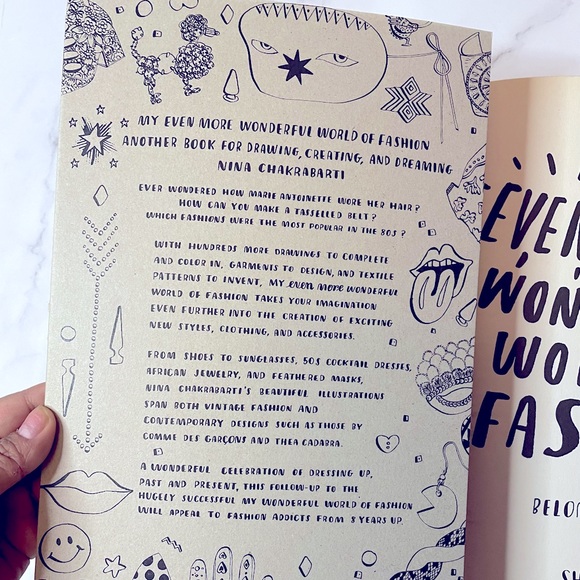 MY EVEN MORE WONDERFUL WORLD OF FASHION
ANOTHER BOOK FOR DRAWING, CREATING, AND DREAMING
NINA CHAKRABARTI
EVER WONDERED HOW MARIE ANTOINETTE WORE HER HAIR?
HOW CAN YOU MAKE A TASSELLED BELT?
WHICH FASHIONS WERE THE MOST POPULAR IN THE 80S?
WITH HUNDREDS MORE DRAWINGS TO COMPLETE
AND COLOR IN, GARMENTS TO DESIGN, AND TEXTILE
PATTERNS TO INVENT, MY even more WONDERFUL
WORLD OF FASHION TAKES YOUR IMAGINATION
EVEN FURTHER INTO THE CREATION OF EXCITING
NEW STYLES, CLOTHING, AND ACCESSORIES.
FROM SHOES TO SUNGLASSES, 50S COCKTAIL DRESSES,
AFRICAN JEWELRY, AND FEATHERED MASKS,
NINA CHAKRABARTI'S BEAUTIFUL ILLUSTRATIONS
SPAN BOTH VINTAGE FASHION AND
CONTEMPORARY DESIGNS SUCH AS THOSE BY
COMME DES GARÇONS AND THEA CADABRA.
A WONDERFUL CELEBRATION OF DRESSING UP,
PAST AND PRESENT, THIS FOLLOW-UP TO THE
HUGELY SUCCESSFUL MY WONDERFUL WORLD OF FASHION
WILL APPEAL TO FASHION ADDICTS FROM 8 YEARS UP.
EVEN
WON
WO
FAS
BELO